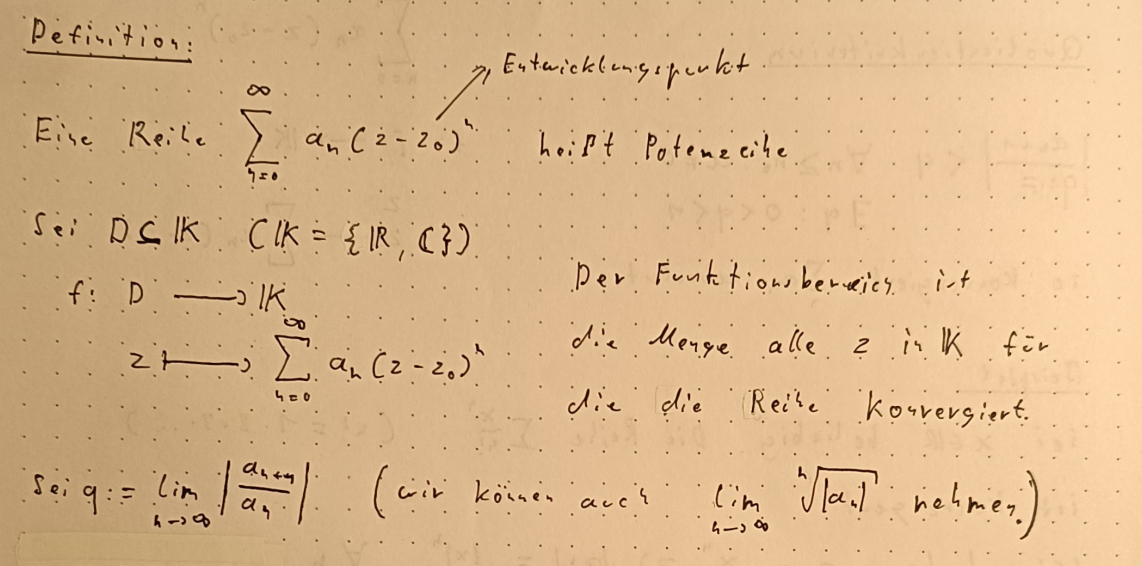 Definition:
Entwicklungspunkt
Eine Reihe ∑_{n=0}^{∞} a_n (z-z_0)^n heißt Potenzreihe
Sei D ⊆ 𝕂 (𝕂 = {ℝ, ℂ})
f: D ⟶ 𝕂
z ⟼ ∑_{n=0}^{∞} a_n (z-z_0)^n
Der Funktionsbereich ist
die Menge alle z in 𝕂 für
die die Reihe konvergiert.
Sei q := lim_{n→∞} |a_{n+1}/a_n| (wir können auch lim_{n→∞} ⁿ√|a_n| nehmen.)